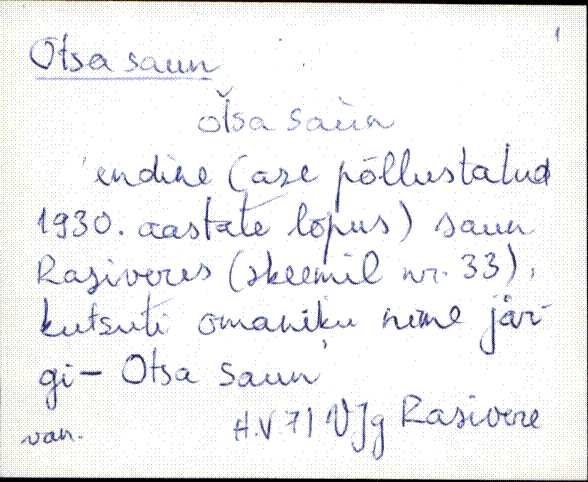 Otsa saun
1
oťsa saùn
'endine (ase põllustatud
1930. aastate lõpus) saun
Rasiveres (skeemil nr. 33),
kutsuti omaniku nime jär-
gi - Otsa saun'
van.
H.V 71 VJg Rasivere